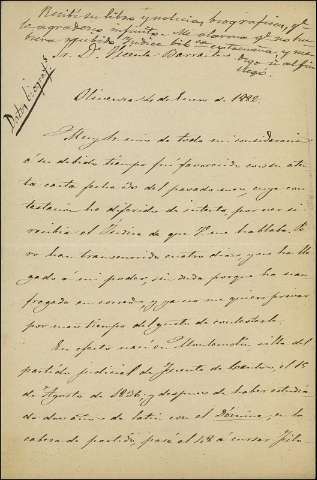 Recibí su libro y noticias biográficas, qe.
le agradezco infinito. Me alarma qe. no hu-
biera recibido Indice bibca. extremeña, y me
Sr. Dn. Vicente Barrantes dijo al fin
llegó.
Datos biográfs.
Olivenza 4 de Enero de 1882.
Muy Sr. mio de toda mi consideracion:
á su debido tiempo fuí favorecido con su aten-
ta carta fecha del pasado mes, cuya con-
testacion he diferido de intento, por ver si
recibia el Indice de que V. me hablaba. Pe-
ro han transcurrido cuatro dias, y no ha lle-
gado á mi poder, sin duda porque ha nau-
fragado en correos, y ya no me quiero privar
por mas tiempo del gusto de contestarle.
En efecto nací en Montemolin villa del
partido judicial de Fuente de Cantos, el 15
de Agosto de 1836; y despues de haber estudia-
do dos años de latin con el Dómine, en la
cabeza de partido, pasé el 48 á cursar Filo-